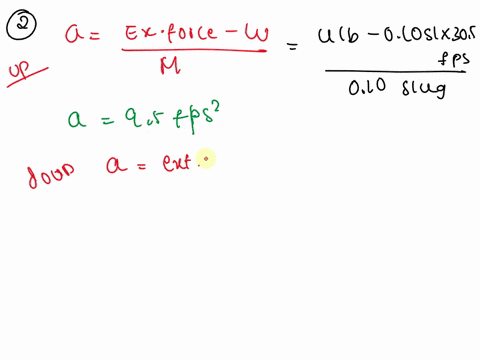 ②
UP
a = Ex. force - W / M = 4 lb - 0.10 sl x 30.5 fps / 0.10 slug
a = 9.5 fps²
down a = ext.